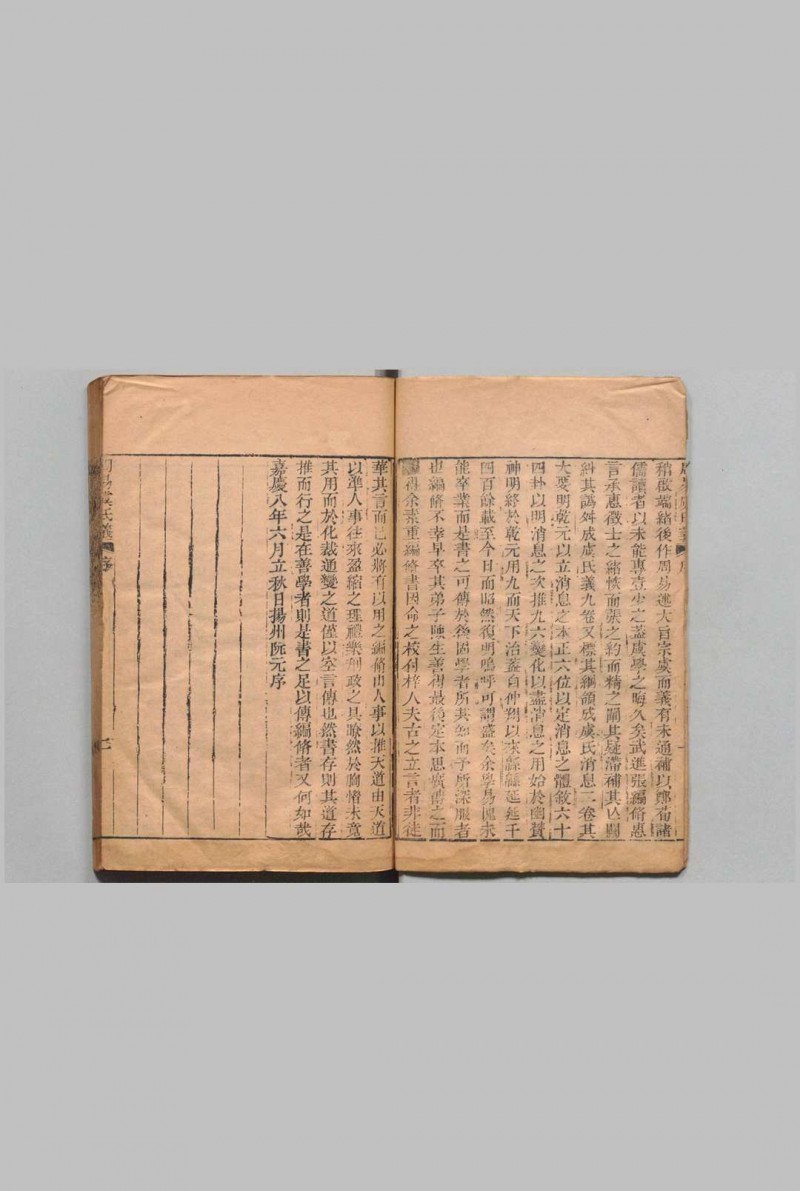 稍啟端緒後作周易述大旨宗虞而義有未通補以鄭荀諸
儒讀者以未能專壹少之蓋虞學之晦久矣武進張編脩惠
言承惠徵士之緒恢而張之約而精之闡其疑滯補其亡闕
糾其譌舛成虞氏義九卷又標其綱領成虞氏消息二卷其
大要明乾元以立消息之本正六位以定消息之體敘六十
四卦以明消息之次推九六變化以盡消息之用始於幽贊
神明終於乾元用九而天下治蓋自仲翔以來緜緜延延千
四百餘載至今日而昭然復明嗚呼可謂盛矣余學易愧未
能卒業而是書之可傳於後固學者所共知而予所深服者
也編脩不幸早卒其弟子陳生善得最後定本思廣傳之而
得余素重編脩書因命之校付梓人夫古之立言者非徒
華其言而已必將有以用之編脩由人事以推天道由天道
以準人事往來盈縮之理禮樂刑政之具瞭然於胸惜未竟
其用而於化裁通變之道僅以空言傳也然書存則其道存
推而行之是在善學者則是書之足以傳編脩者又何如哉
嘉慶八年六月立秋日揚州阮元序
周易虞氏義 序
二